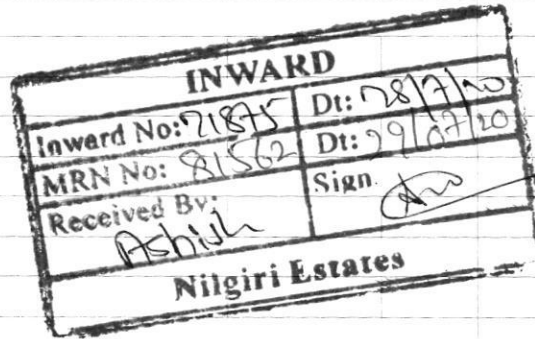 INWARD
Inward No: 21875 Dt: 28/7/20
MRN No: 81562 Dt: 29/07/20
Received By: Sign.
Ashish
Nilgiri Estates